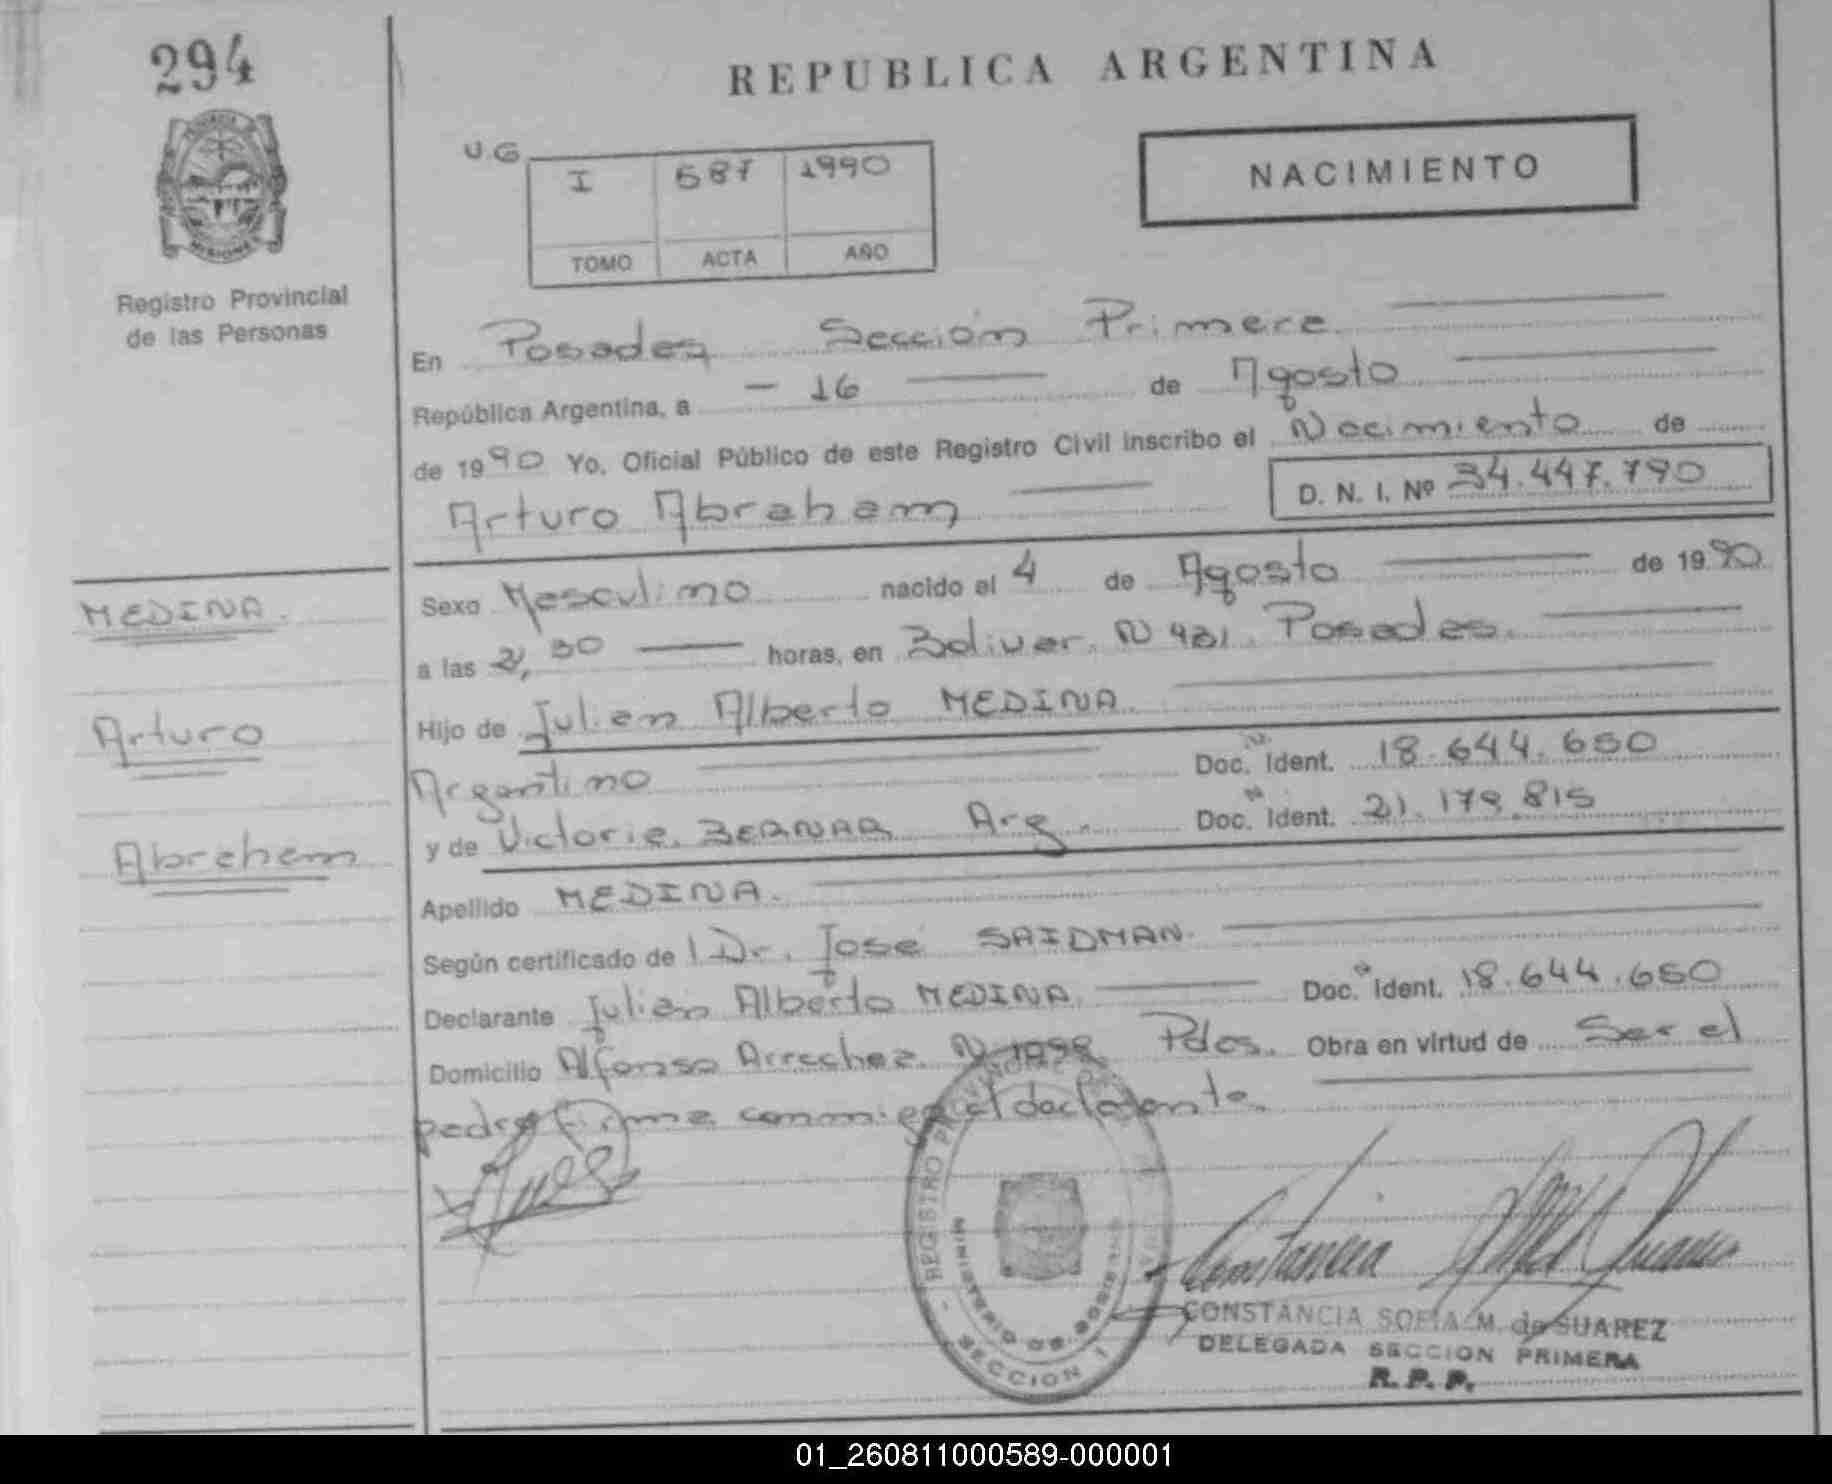 294
REPUBLICA ARGENTINA
NACIMIENTO
U.G
I 587 1990
TOMO ACTA AÑO
Registro Provincial
de las Personas
En Posadas Sección Primera
República Argentina, a 16 de Agosto
de 1990 Yo, Oficial Público de este Registro Civil inscribo el Nacimiento de
Arturo Abraham D. N. I. Nº 34.447.790
MEDINA.
Arturo
Abraham
Sexo Masculino nacido el 4 de Agosto de 1990
a las 2,30 horas, en Bolivar. N 421. Posadas.
Hijo de Julian Alberto MEDINA
Argentino Doc. Ident. 18.644.650
y de Victoria. BERNAR Arg. Doc. Ident. 21.179.815
Apellido MEDINA.
Según certificado de l Dr. José SAIDMAN.
Declarante Julian Alberto MEDINA Doc. Ident. 18.644.650
Domicilio Alfonso Arrechea N Pdas. Obra en virtud de Ser el
padre firma conmigo el declarante.
REGISTRO
MINISTERIO DE
SECCION 1
CONSTANCIA SOFIA M. de SUAREZ
DELEGADA SECCION PRIMERA
R. P. P.
01_260811000589-000001